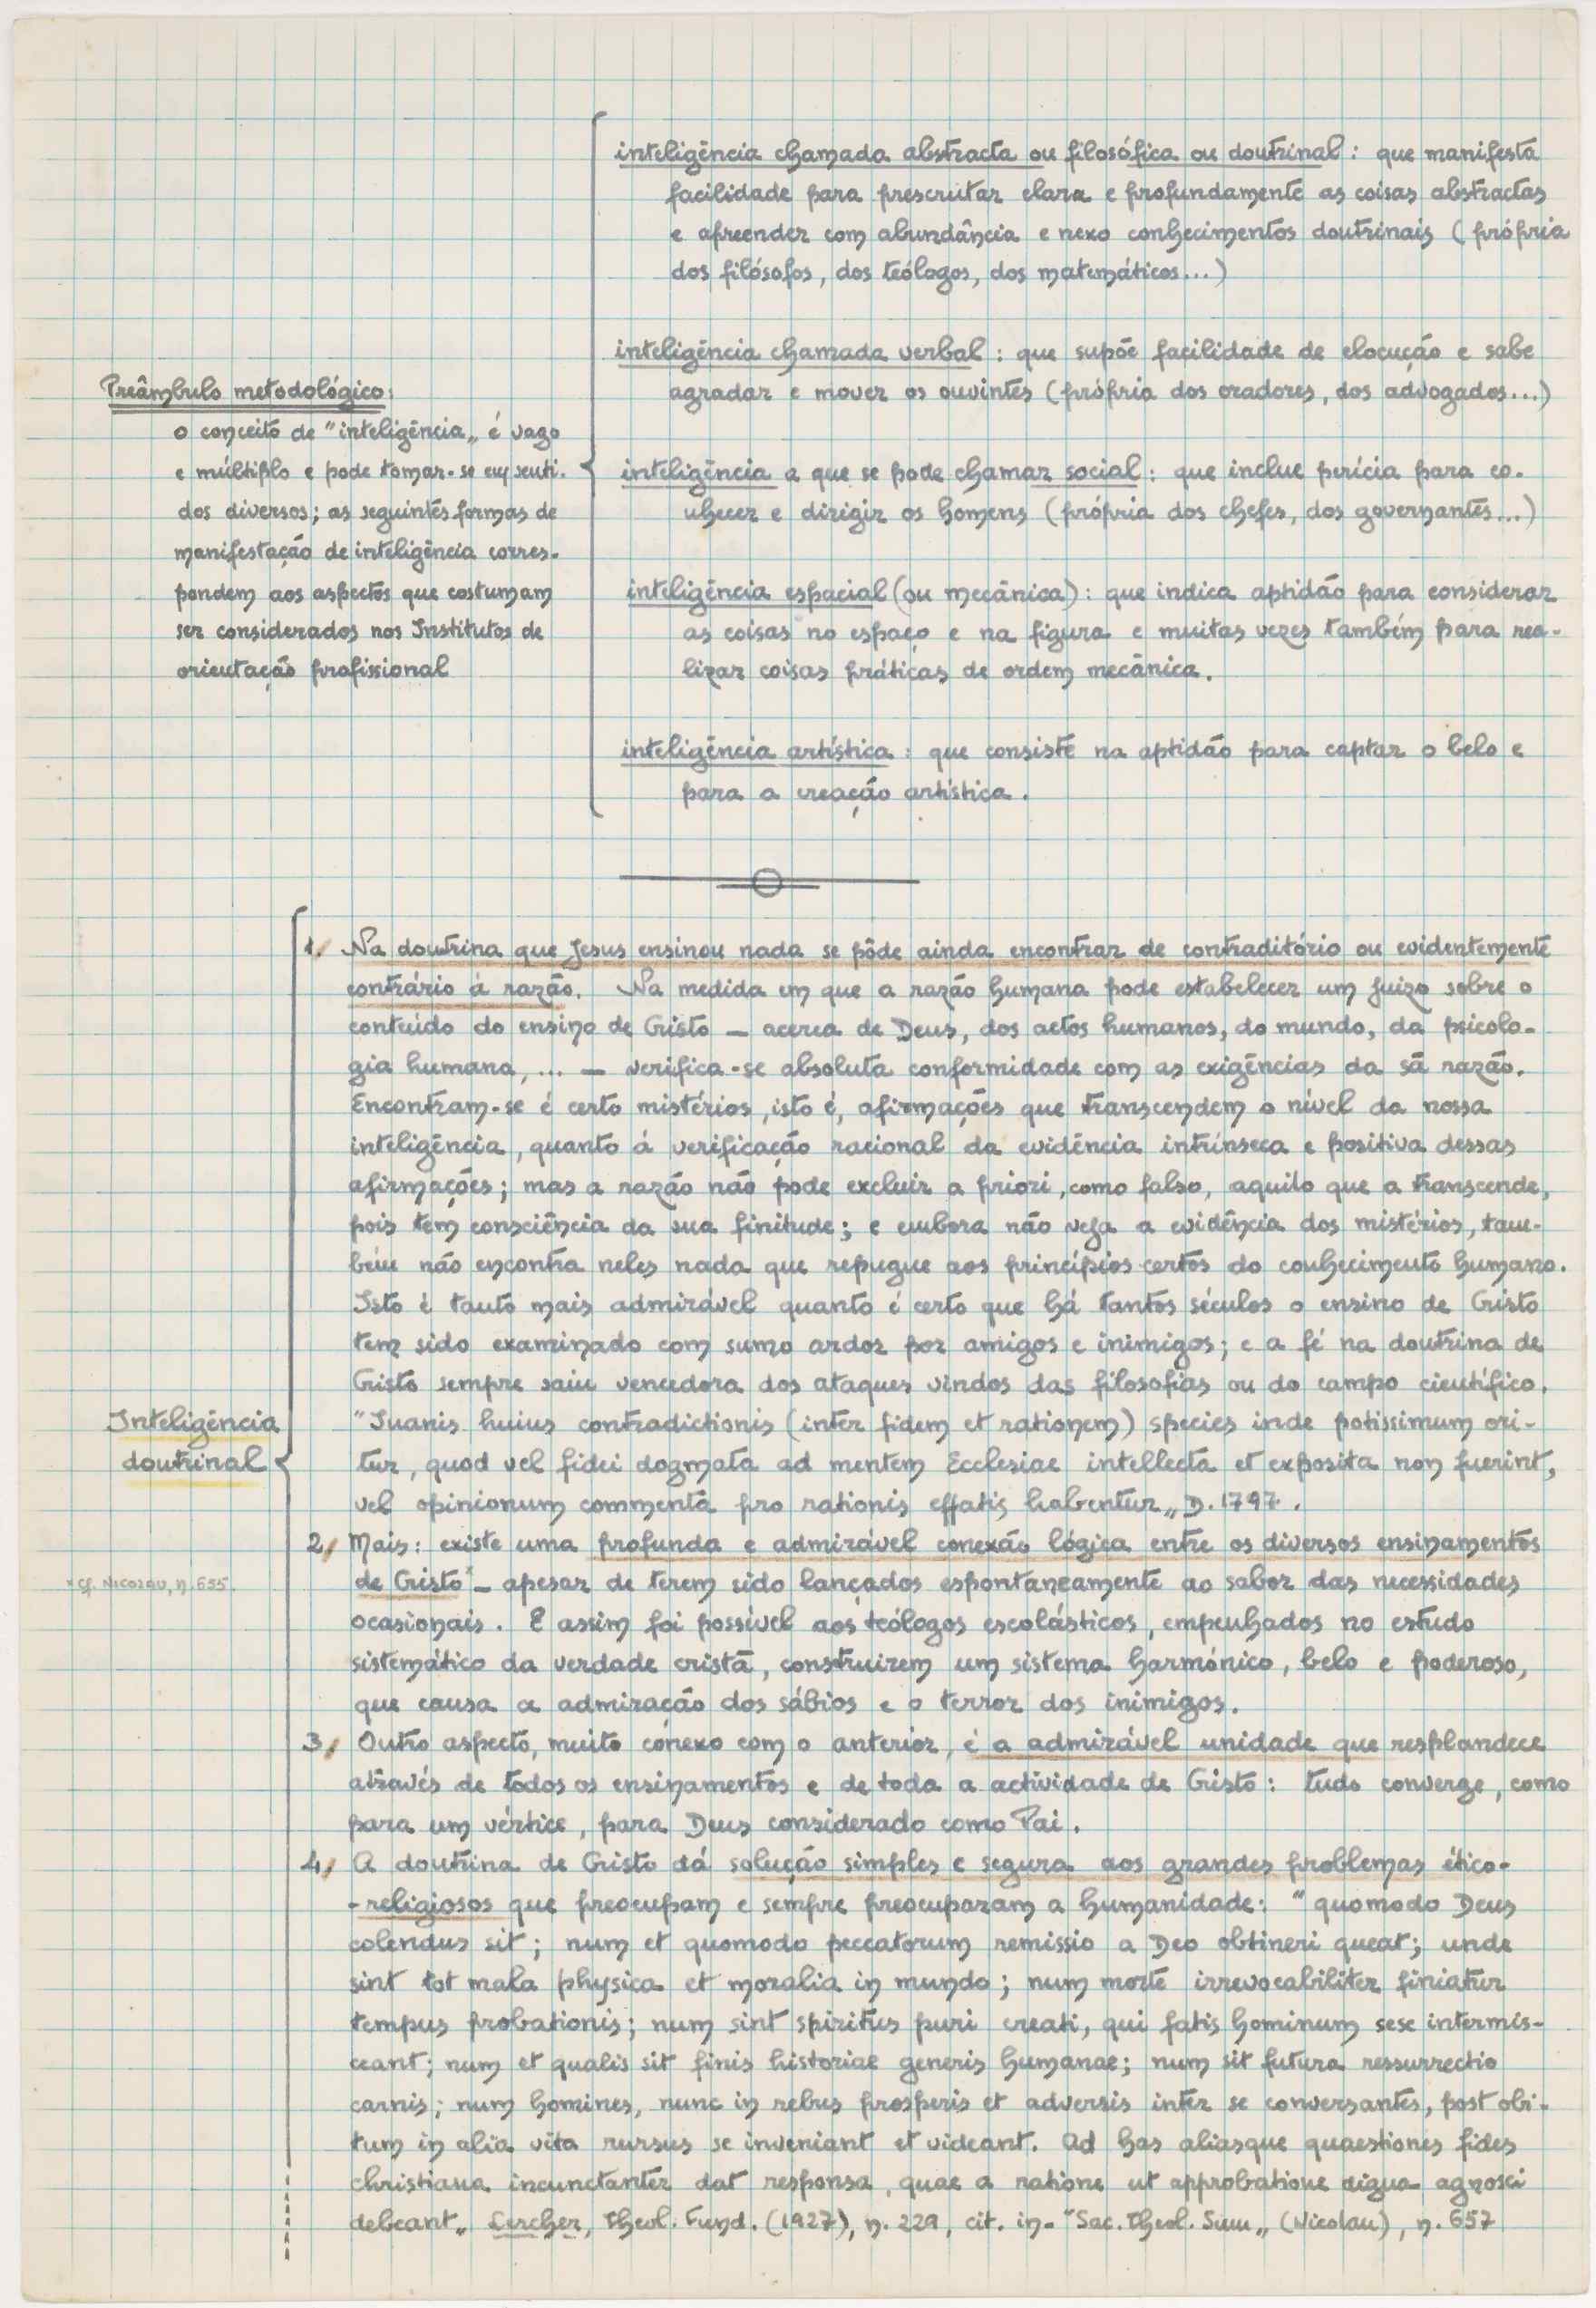 Preâmbulo metodológico:
o conceito de "inteligência„ é vago
e múltiplo e pode tomar-se em senti-
dos diversos; as seguintes formas de
manifestação de inteligência corres-
pondem aos aspectos que costumam
ser considerados nos Institutos de
orientação profissional
inteligência chamada abstracta ou filosófica ou doutrinal: que manifesta
facilidade para prescrutar clara e profundamente as coisas abstractas
e apreender com abundância e nexo conhecimentos doutrinais (própria
dos filósofos, dos teólogos, dos matemáticos...)
inteligência chamada verbal: que supõe facilidade de elocução e sabe
agradar e mover os ouvintes (própria dos oradores, dos advogados...)
inteligência a que se pode chamar social: que inclue perícia para co-
nhecer e dirigir os homens (própria dos chefes, dos governantes...)
inteligência espacial (ou mecânica): que indica aptidão para considerar
as coisas no espaço e na figura e muitas vezes também para rea-
lizar coisas práticas de ordem mecânica.
inteligência artística: que consiste na aptidão para captar o belo e
para a creação artística.
Inteligência
doutrinal
1/ Na doutrina que Jesus ensinou nada se pôde ainda encontrar de contraditório ou evidentemente
contrário à razão. Na medida em que a razão humana pode estabelecer um juízo sobre o
conteúdo do ensino de Cristo — acerca de Deus, dos actos humanos, do mundo, da psicolo-
gia humana, ... — verifica-se absoluta conformidade com as exigências da sã razão.
Encontram-se é certo mistérios, isto é, afirmações que transcendem o nível da nossa
inteligência, quanto à verificação racional da evidência intrínseca e positiva dessas
afirmações; mas a razão não pode excluir a priori, como falso, aquilo que a transcende,
pois tem consciência da sua finitude; e embora não veja a evidência dos mistérios, tam-
bém não encontra neles nada que repugne aos princípios certos do conhecimento humano.
Isto é tanto mais admirável quanto é certo que há tantos séculos o ensino de Cristo
tem sido examinado com sumo ardor por amigos e inimigos; e a fé na doutrina de
Cristo sempre saiu vencedora dos ataques vindos das filosofias ou do campo científico.
"Inanis huius contradictionis (inter fidem et rationem) species inde potissimum ori-
tur, quod vel fidei dogmata ad mentem Ecclesiae intellecta et exposita non fuerint,
vel opinionum commenta pro rationis effatis habentur„ D. 1797.
2/ Mais: existe uma profunda e admirável conexão lógica entre os diversos ensinamentos
de Cristo* — apesar de terem sido lançados espontaneamente ao sabor das necessidades
* cf. Nicolau, n. 655.
ocasionais. E assim foi possível aos teólogos escolásticos, empenhados no estudo
sistemático da verdade cristã, construirem um sistema harmónico, belo e poderoso,
que causa a admiração dos sábios e o terror dos inimigos.
3/ Outro aspecto, muito conexo com o anterior, é a admirável unidade que resplandece
através de todos os ensinamentos e de toda a actividade de Cristo: tudo converge, como
para um vértice, para Deus considerado como Pai.
4/ A doutrina de Cristo dá solução simples e segura aos grandes problemas ético-
-religiosos que preocupam e sempre preocuparam a humanidade: "quomodo Deus
colendus sit; num et quomodo peccatorum remissio a Deo obtineri queat; unde
sint tot mala physica et moralia in mundo; num morte irrevocabiliter finiatur
tempus probationis; num sint spiritus puri creati, qui fatis hominum sese intermis-
ceant; num et qualis sit finis historiae generis humanae; num sit futura ressurrectio
carnis; num homines, nunc in rebus prosperis et adversis inter se conversantes, post obi-
tum in alia vita rursus se inveniant et videant. Ad has aliasque quaestiones fides
christiana incunctanter dat responsa, quae a ratione ut approbatione digna agnosci
debeant„ Lercher, Theol. Fund. (1927), n. 229, cit. in- "Sac. Theol. Sum„ (Nicolau), n. 657